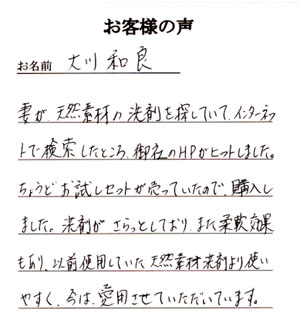 お客様の声
お名前 大川和良
妻が、天然素材の洗剤を探していて、インターネッ
トで検索したところ、御社のHPがヒットしました。
ちょうどお試しセットが売っていたので、購入し
ました。洗剤がさらっとしており、また柔軟効果
もあり、以前使用していた天然素材洗剤より使い
やすく、今は、愛用させていただいています。